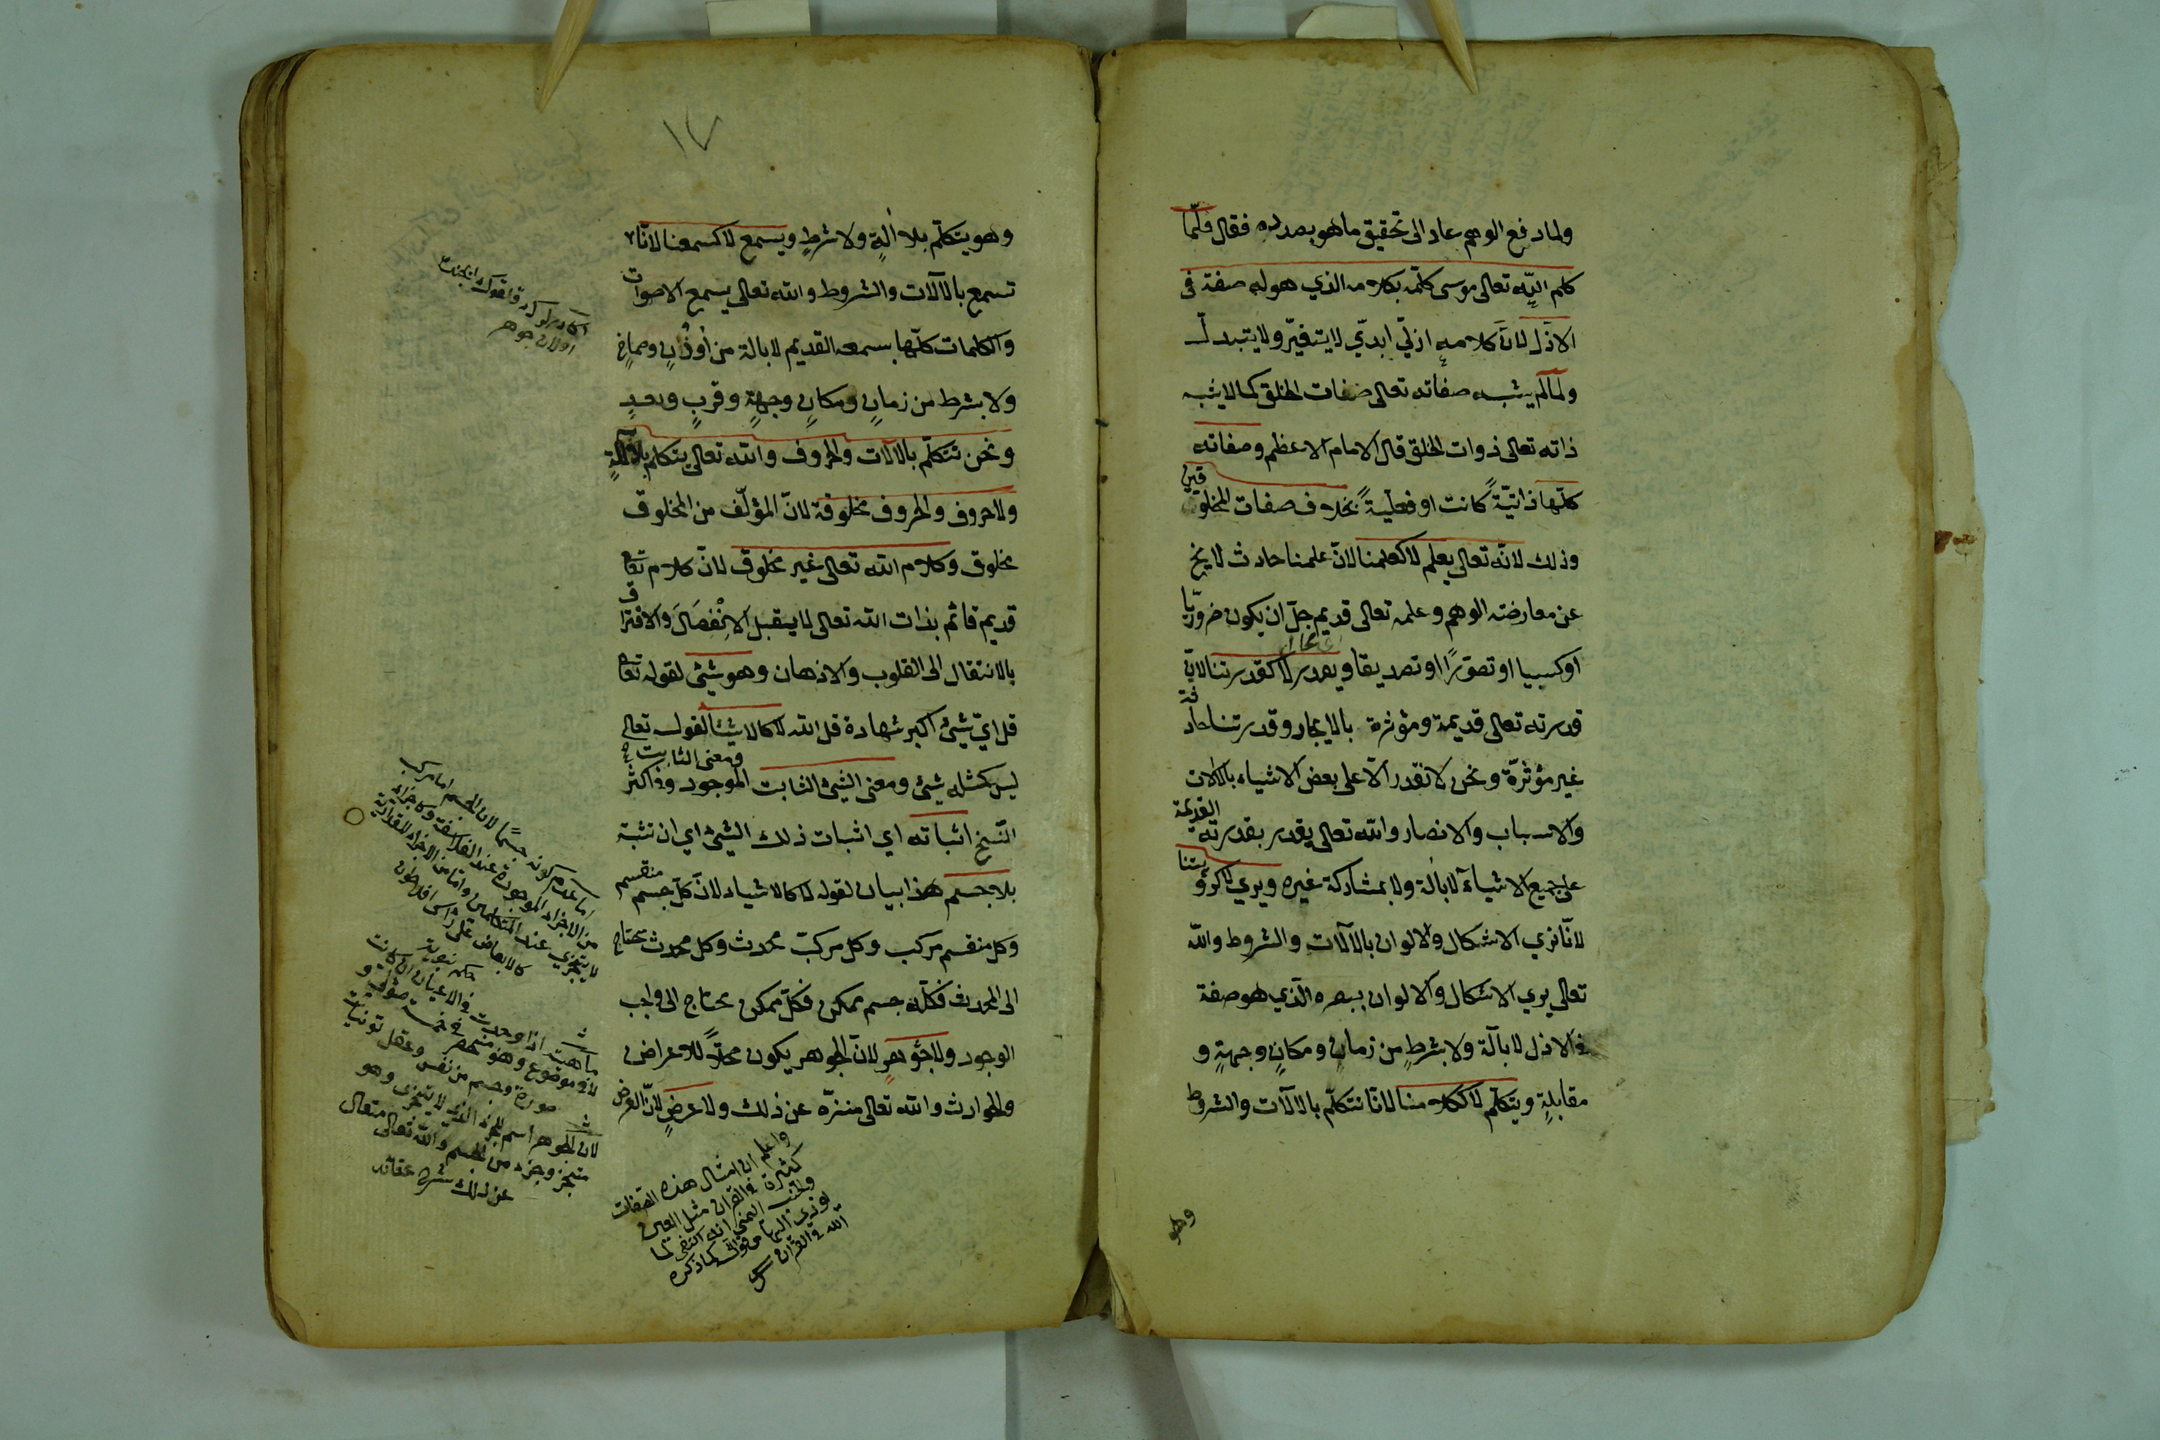 ولما دفع الوهم عاد الى تحقيق ما هو بصدده فقال فلمّا
كلم اللّه تعالى موسى كلّمه بكلامه الذي هو له صفة فى
الازل لانّ كلامه ازليّ ابديّ لا يتغيّر ولا يتبدل
ولما لم يشبه صفاته تعالى صفات الخلق كما لا يشبه
ذاته تعالى ذوات الخلق قال الامام الاعظم وصفاته
كلّها ذاتيّةً كانت او فعليّةً بخلاف صفات المخلوقين
وذلك لانّه تعالى يعلم لا كعلمنا لانّ علمنا حادث لا يخ
عن معارضة الوهم وعلمه تعالى قديم جلّ ان يكون ضروريّا
او كسبيا او تصوّرًا او تصديقا ويقدر لا كقدرتنا لانّ
قدرته تعالى قديمة ومؤثرة بالايجاد وقدرتنا حادثة
غير مؤثرّة ونحن لا نقدر الّا على بعض الاشياء بالآلات
والاسباب والانصار والله تعالى يقدر بقدرته القديمة
على جميع الاشياء لا بالة ولا بمشاركة غيره ويري لا كرؤيتنا
لانّا نري الاشكال والالوان بالآلات والشروط واللّه
تعالى يري الاشكال والالوان ببصره الّذي هو صفة
فى الازل لا بآلة ولا بشرطٍ من زمانٍ ومكانٍ وجهةٍ و
مقابلةٍ ويتكلّم لا ككلامنا لانّا نتكلّم بالآلات والشروط
وهو
١٧
وهو يتكلّم بلا الةٍ ولا شرطٍ ويسمع لا كسمعنا لانّا
نسمع بالآلات والشروط والله تعالى يسمع الاصوات
والكلمات كلّها بسمعه القديم لا بالة من اُذُنٍ وصماخ
ولا بشرط من زمانٍ ومكانٍ وجهةٍ وقربٍ وبعدٍ
ونحن نتكلّم بالآلات والحروف والله تعالى يتكلم بلا آلةٍ
ولا حروف والحروف مخلوقة لانّ المؤلّف من المخلوق
مخلوق وكلام الله تعالى غير مخلوق لانّ كلام تعا
قديم قائم بذات الله تعالى لا يقبل الانْفصَالَ والافتراق
بالانتقال الى القلوب والاذهان وهو شيئ لقوله تعا
قل ايّ شيئ اكبر شهادة قل الله لا كالاشيآ لقوله تعالى
ليس كمثله شيئ ومعنى الشيئ الثابت الموجود وفى اكثر
ومعنى الثابت
النّسخ اثباته اي اثبات ذلك الشيئ اي ان تثبته
بلا جسم هذا بيان لقوله لا كالاشياء لانّ كلّ جسم منقسم
وكل منقسم مركب وكل مركبّ محدث وكل محدث محتاج
الى المحدث فكلّ جسم ممكن فكلّ ممكن محتاج الى واجب
الوجود ولا جوهرٍ لانّ الجوهر يكون محلّاً للاعراض
والحوادث والله تعالى منزّه عن ذلك ولا عرضٍ لانّ العرض
لان الجسم اما مركب
من الاجزاء الموجودة عند الفلاسفة
لا يتجزى عند المتكلمين واما من الاجزاء
لا فى موضوع وهو منحصر فى خمسة
صورة وجسم من نفس وعقل
لان الجوهر اسم للجزء الذى لا يتجزى وهو
متحيز وجزء من الجسم والله تعالى متعال
عن ذلك شرح عقائد
واعلم ان امثال هذه الصفات
كثيرة فى القران مثل العين
والجنب
كما ذكره
الله فى القرآن